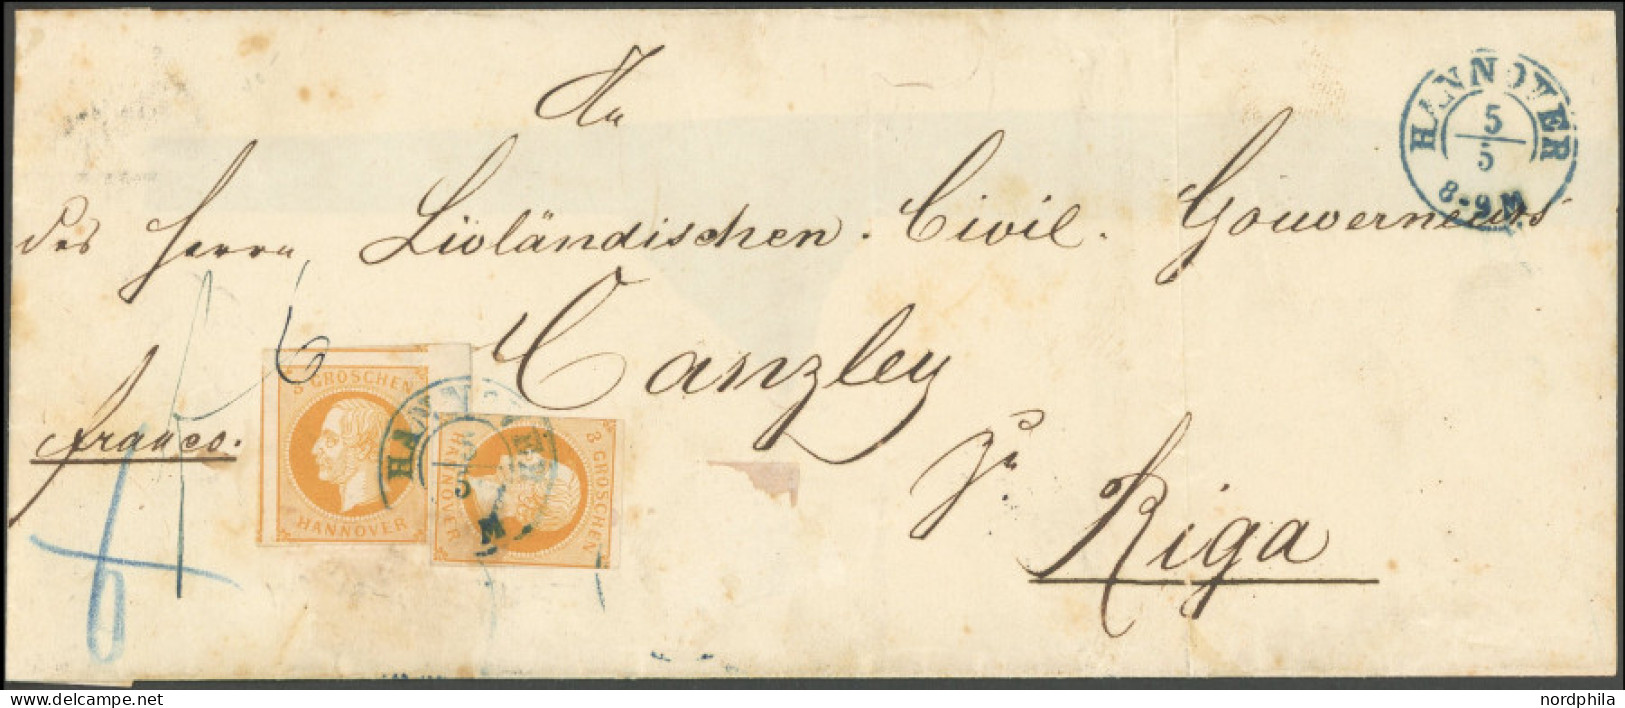 HANNOVER
5
5
8-9 M
An
des Herrn Livländischen. Civil. Gouverneurs
Canzley
franco.
6
3 GROSCHEN
HANNOVER
HANNOVER
5
M
3 GROSCHEN
HANNOVER
zu
Riga
nordphila